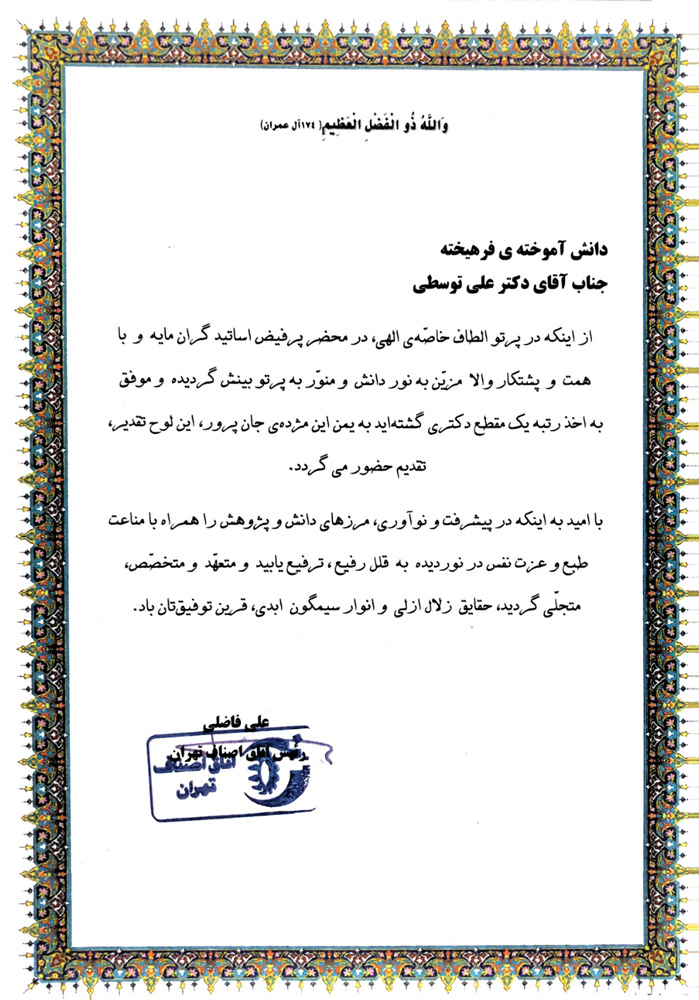 وَاللَّهُ ذُو الْفَضْلِ الْعَظِيمِ( ١٧٤آل عمران)
دانش آموخته ی فرهیخته
جناب آقای دکتر علی توسطی
از اینکه در پرتو الطاف خاصّه‌ی الهی، در محضر پرفیض اساتید گران مایه و با
همت و پشتکار والا مزیّن به نور دانش و منوّر به پرتو بینش گردیده و موفق
به اخذ رتبه یک مقطع دکتری گشته‌اید به یمن این مژده‌ی جان پرور، این لوح تقدیر،
تقدیم حضور می گردد.
با امید به اینکه در پیشرفت و نوآوری، مرزهای دانش و پژوهش را همراه با مناعت
طبع و عزت نفس در نوردیده به قلل رفیع، ترفیع یابید و متعهّد و متخصّص،
متجلّی گردید، حقایق زلال ازلی و انوار سیمگون ابدی، قرین توفیق‌تان باد.
علی فاضلی
رئیس اتاق اصناف تهران
اتاق اصناف
تهران